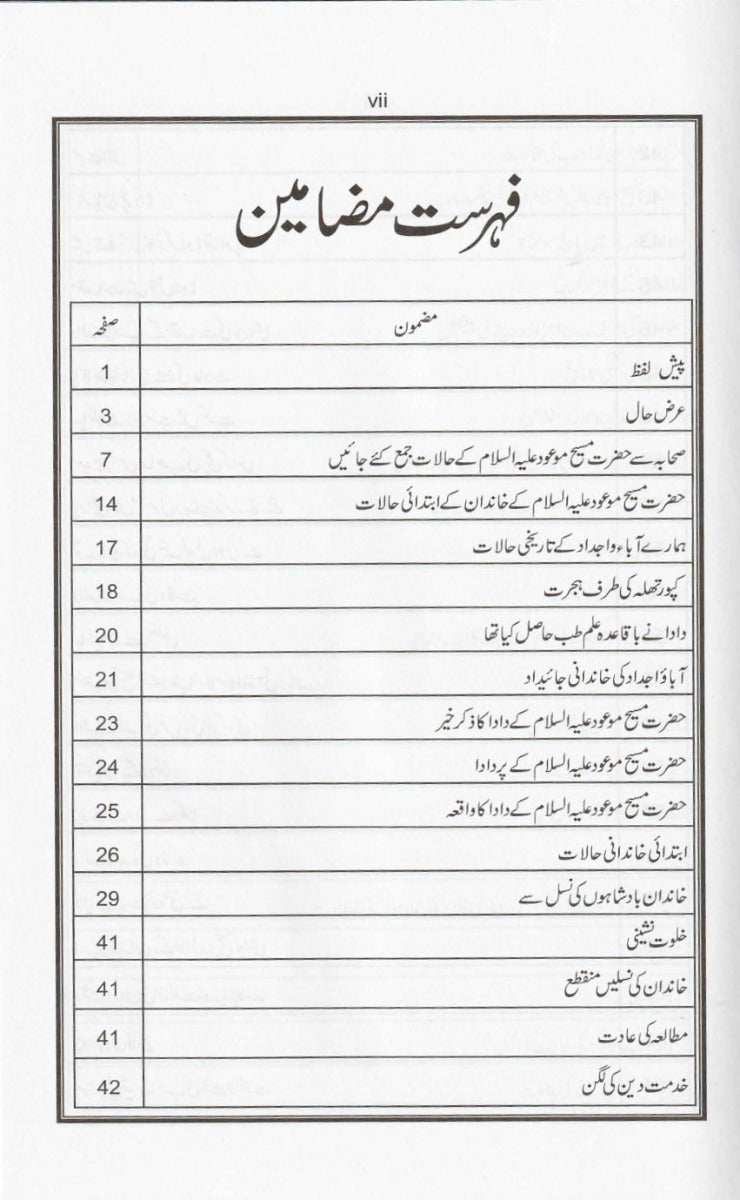 vii
فہرست مضامین
مضمون صفحہ
پیش لفظ 1
عرض حال 3
صحابہ سے حضرت مسیح موعود علیہ السلام کے حالات جمع کئے جائیں 7
حضرت مسیح موعود علیہ السلام کے خاندان کے ابتدائی حالات 14
ہمارے آباء و اجداد کے تاریخی حالات 17
کپورتھلہ کی طرف ہجرت 18
دادا نے باقاعدہ علم طب حاصل کیا تھا 20
آباؤ اجداد کی خاندانی جائیداد 21
حضرت مسیح موعود علیہ السلام کے دادا کا ذکر خیر 23
حضرت مسیح موعود علیہ السلام کے پردادا 24
حضرت مسیح موعود علیہ السلام کے دادا کا واقعہ 25
ابتدائی خاندانی حالات 26
خاندان بادشاہوں کی نسل سے 29
خلوت نشینی 41
خاندان کی نسلیں منقطع 41
مطالعہ کی عادت 41
خدمت دین کی لگن 42